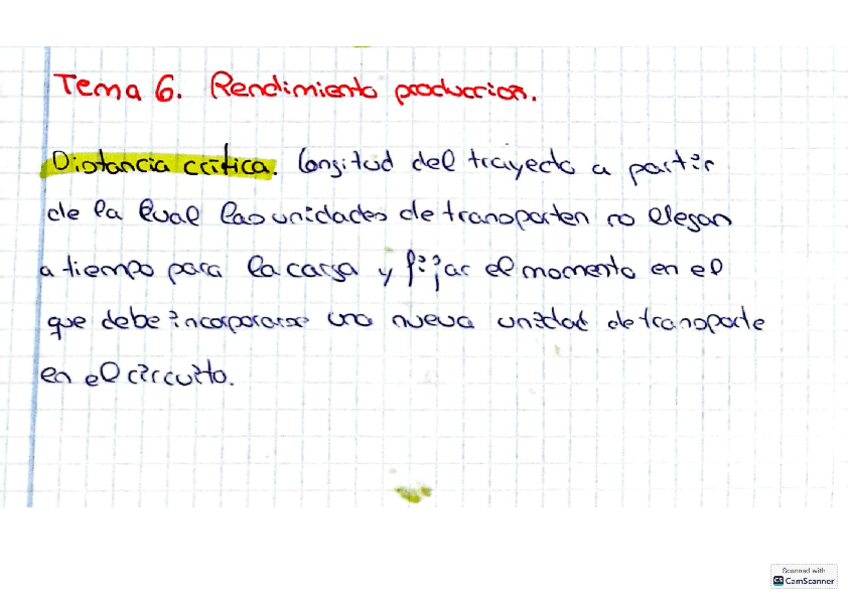 Tema 6. Rendimiento produccion.
Distancia crítica. Longitud del trayecto a partir
de la cual las unidades de transporten no llegan
a tiempo para la carga y fijar el momento en el
que debe incorporarse una nueva unidad de transporte
en el circuito.
Scanned with
CS CamScanner